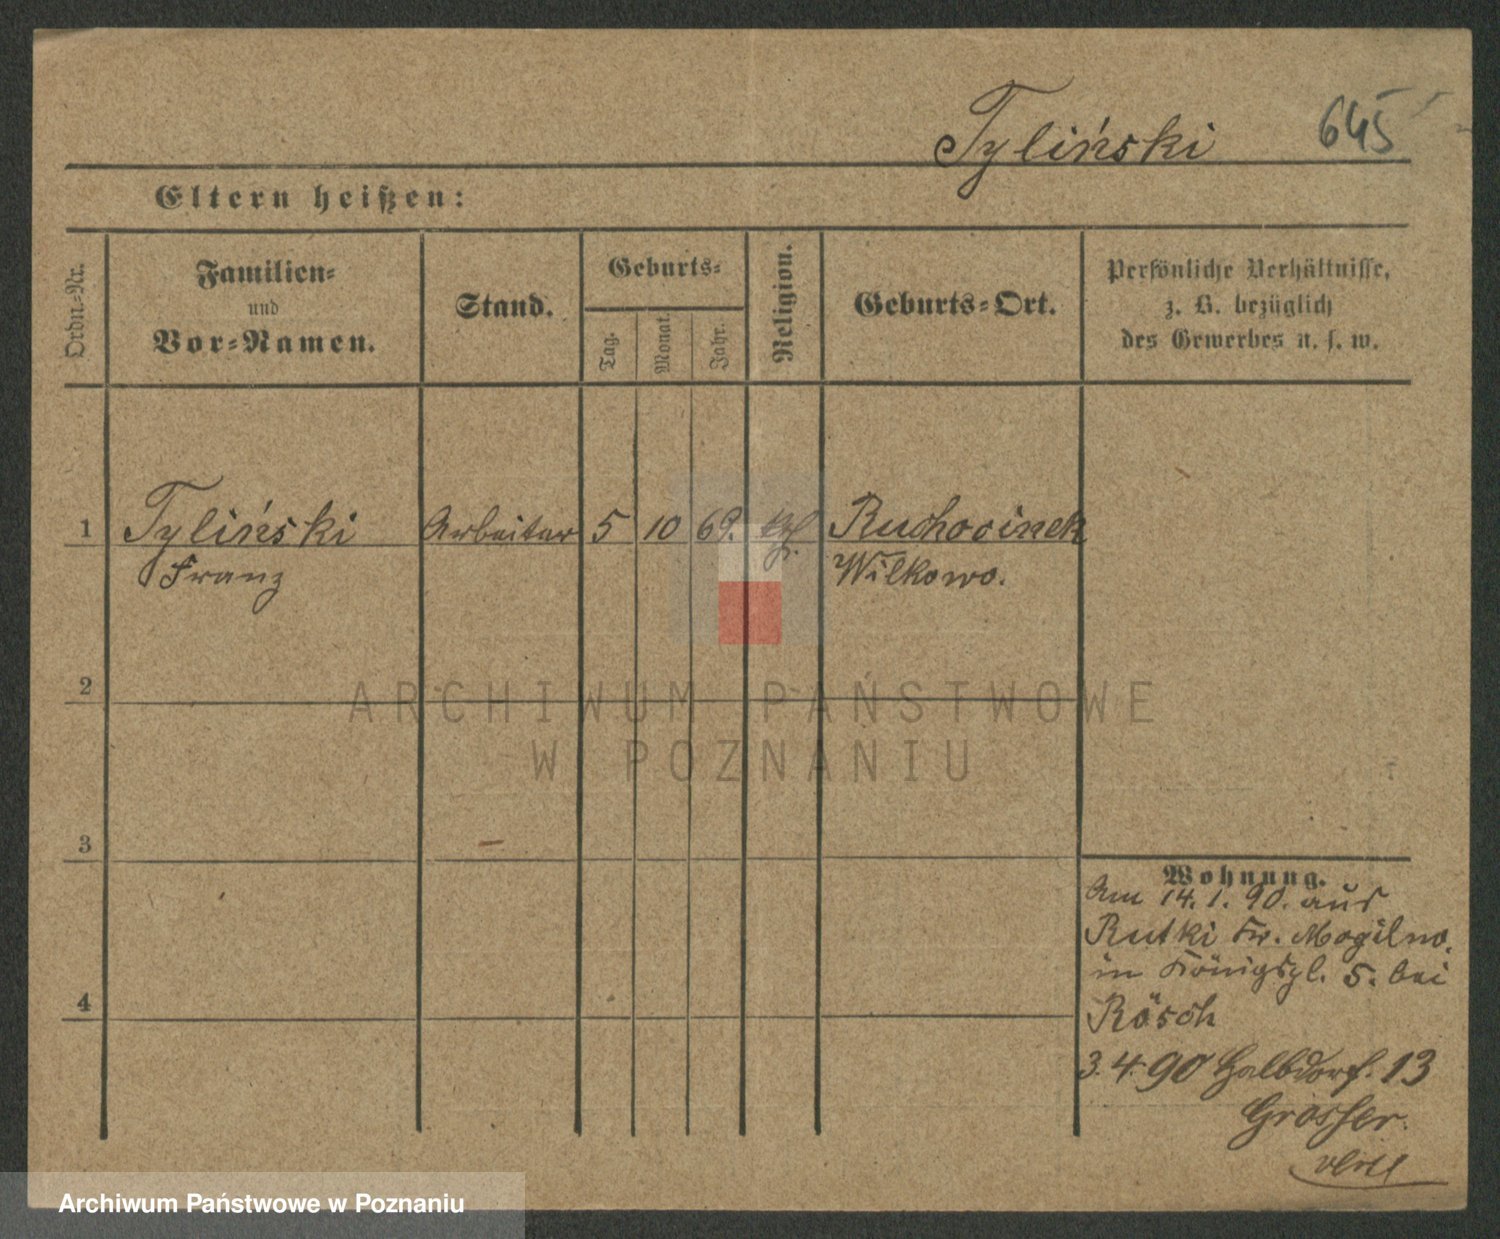 Tyliński 645
Eltern heißen:
Ordn.-Nr.
Familien-
und
Vor-Namen.
Stand.
Geburts-
Tag.
Monat.
Jahr.
Religion.
Geburts-Ort.
Persönliche Verhältnisse,
z. B. bezüglich
des Gewerbes u. s. w.
1 Tyliński Arbeiter 5 10 69. Ruchocinek
Franz Wilkowo.
2
3
4
Wohnung.
Am 14. 1. 90. aus
Rutki Kr. Mogilno.
in Königspl. 5. bei
Rösch
3. 4. 90 Halbdorf. 13
Grosser.
ARCHIWUM PAŃSTWOWE
W POZNANIU
Archiwum Państwowe w Poznaniu